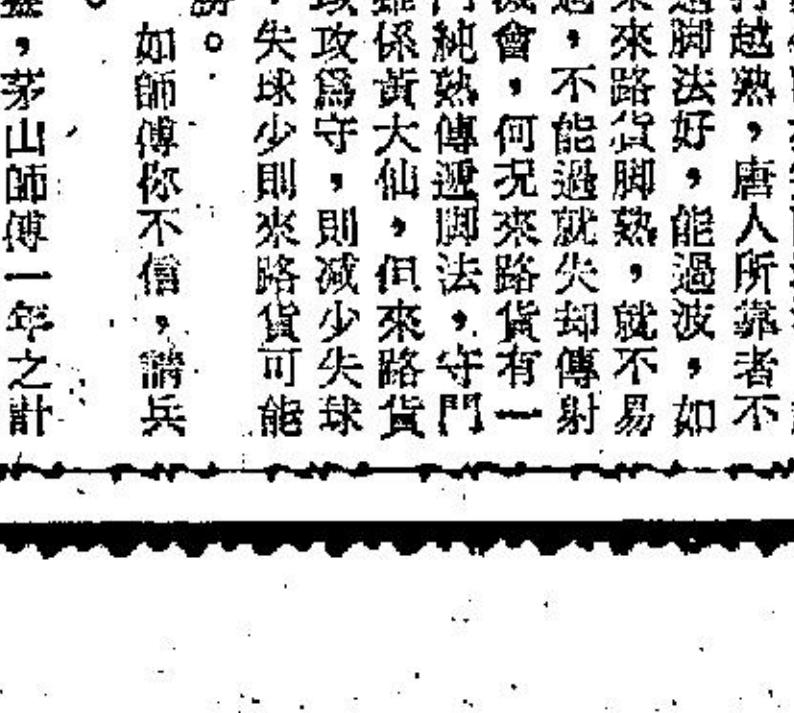 越熟，唐人所靠者不
脚法好，能過波，如
來路貨脚熟，就不易
，不能過就失却傳射
會，何况來路貨有一
純熟傳遞脚法，守門
係黃大仙，但來路貨
攻爲守，則减少失球
失球少則來路貨可能
。
如師傅你不信，請兵
，茅山師傅一年之計